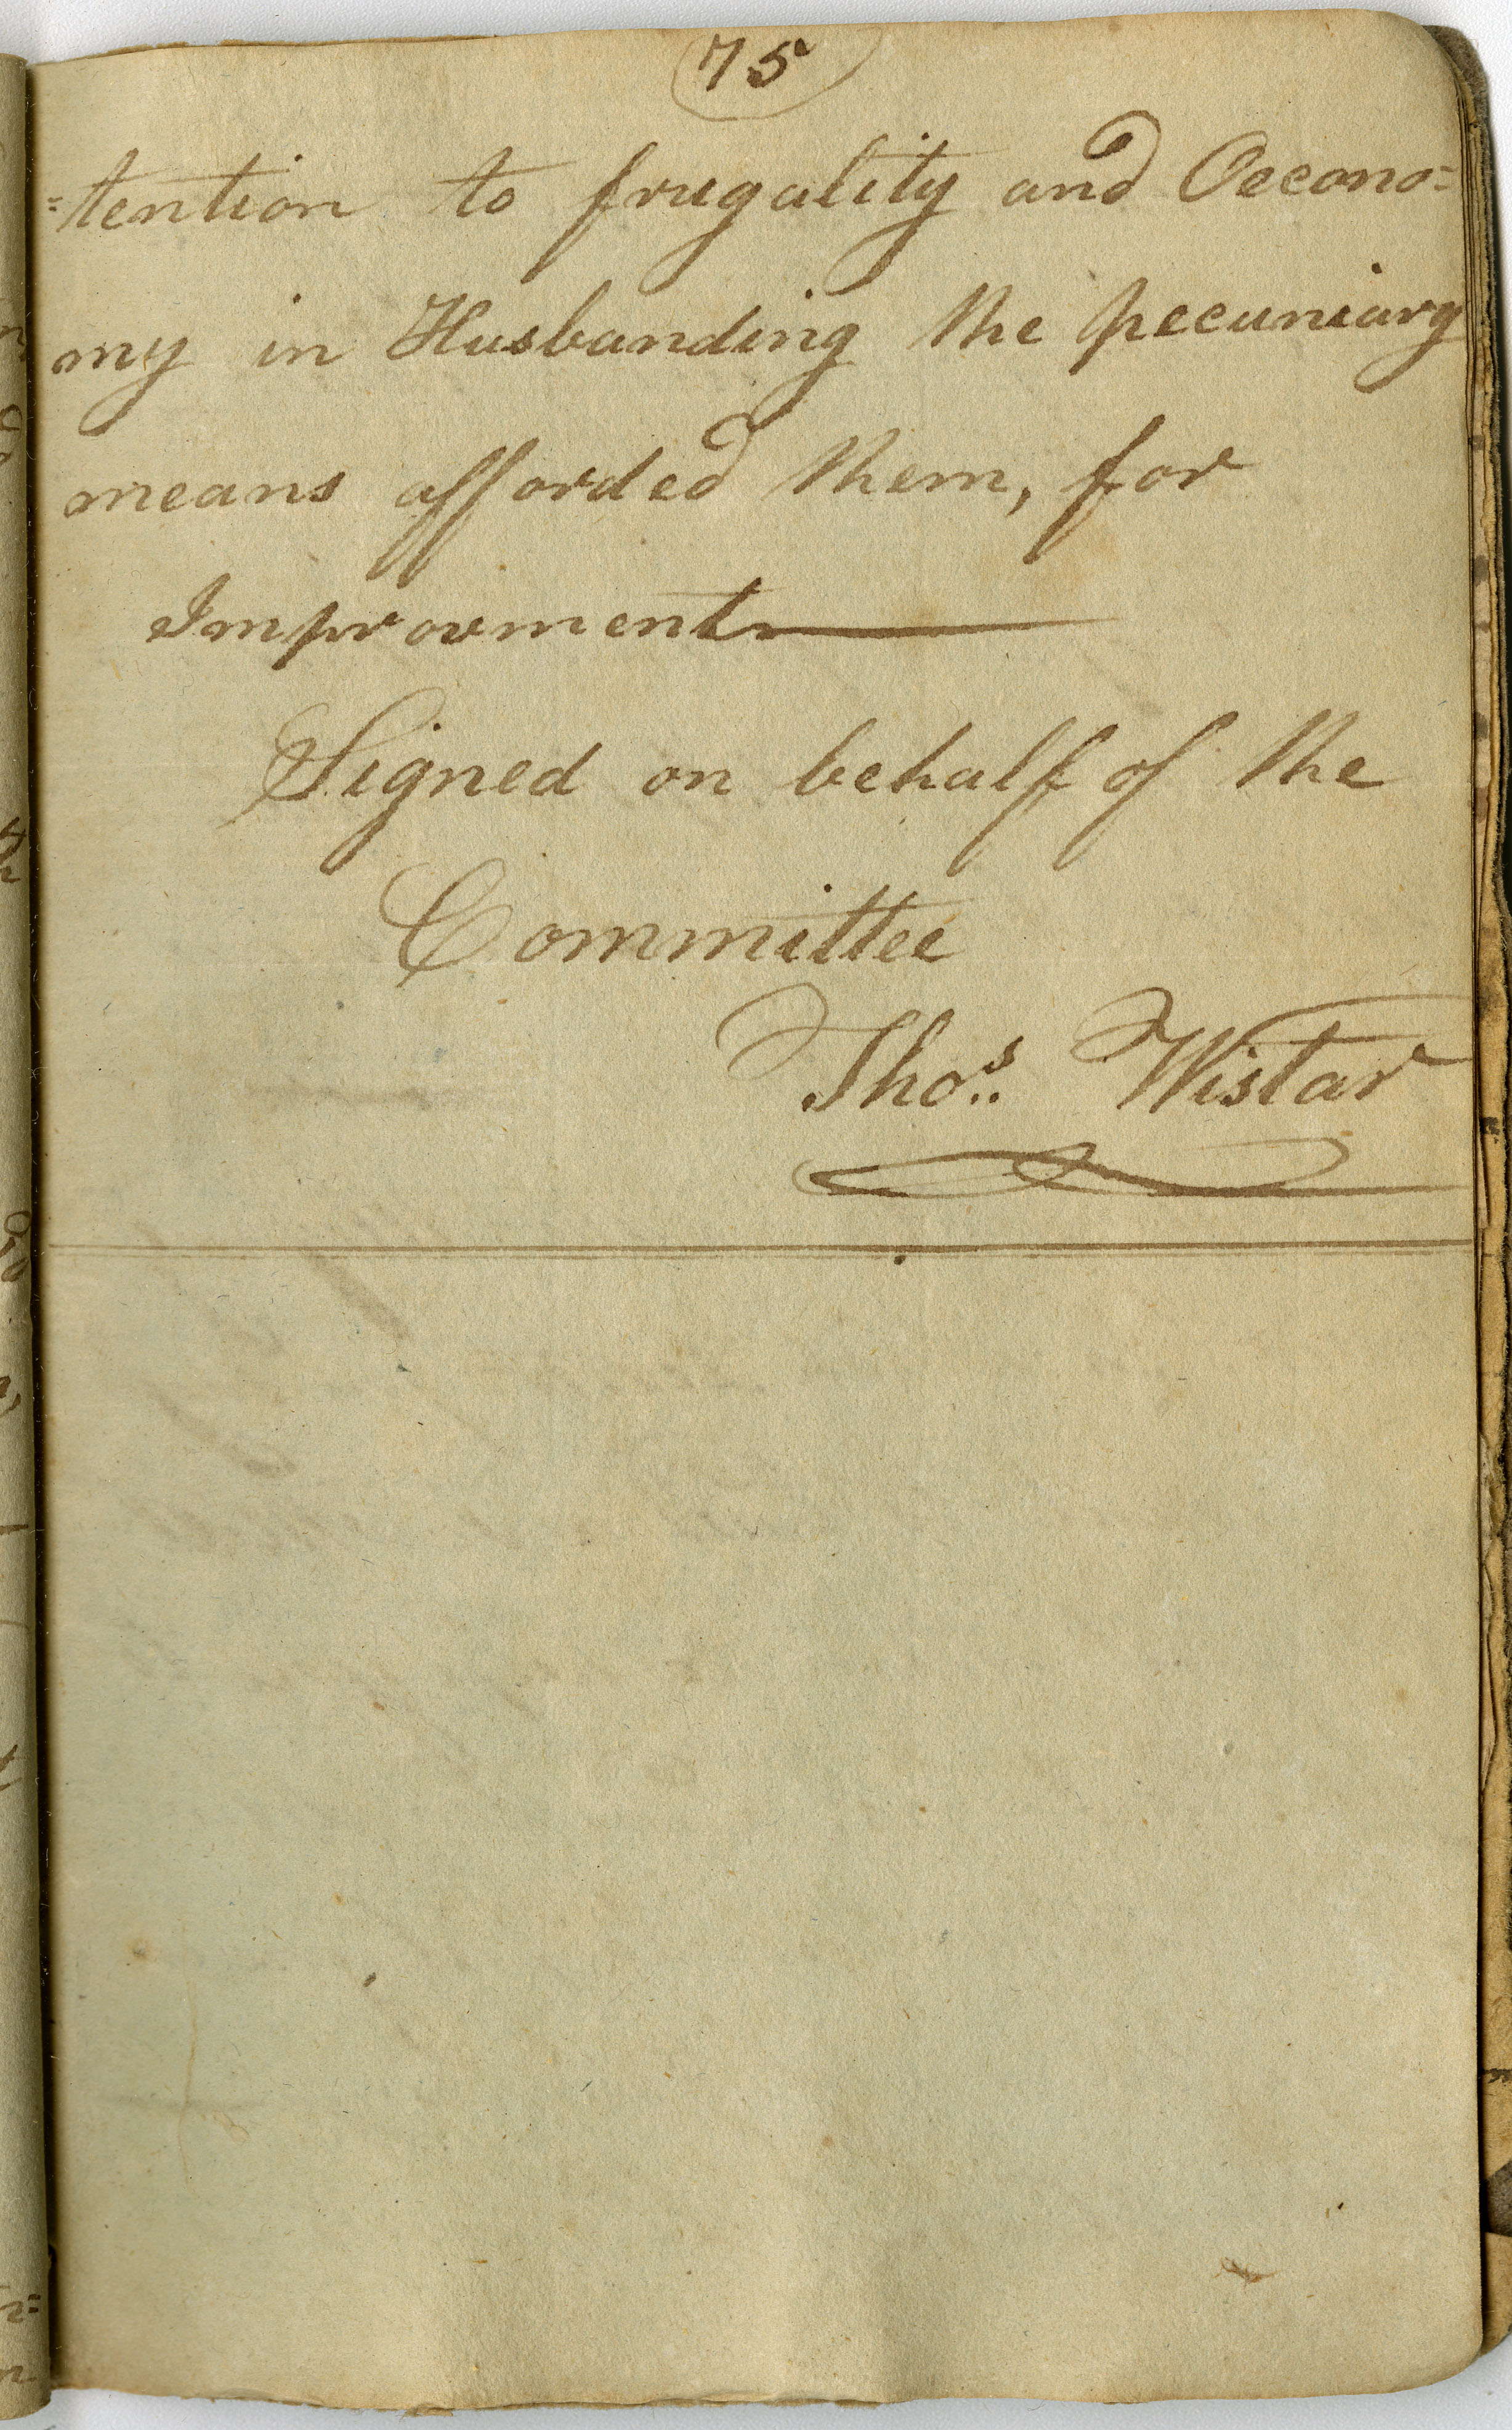 75
=tention to frugality and Oecono=
my in Husbanding the pecuniary
means afforded them, for
Improvment
Signed on behalf of the
Committee
Thos. Wistar